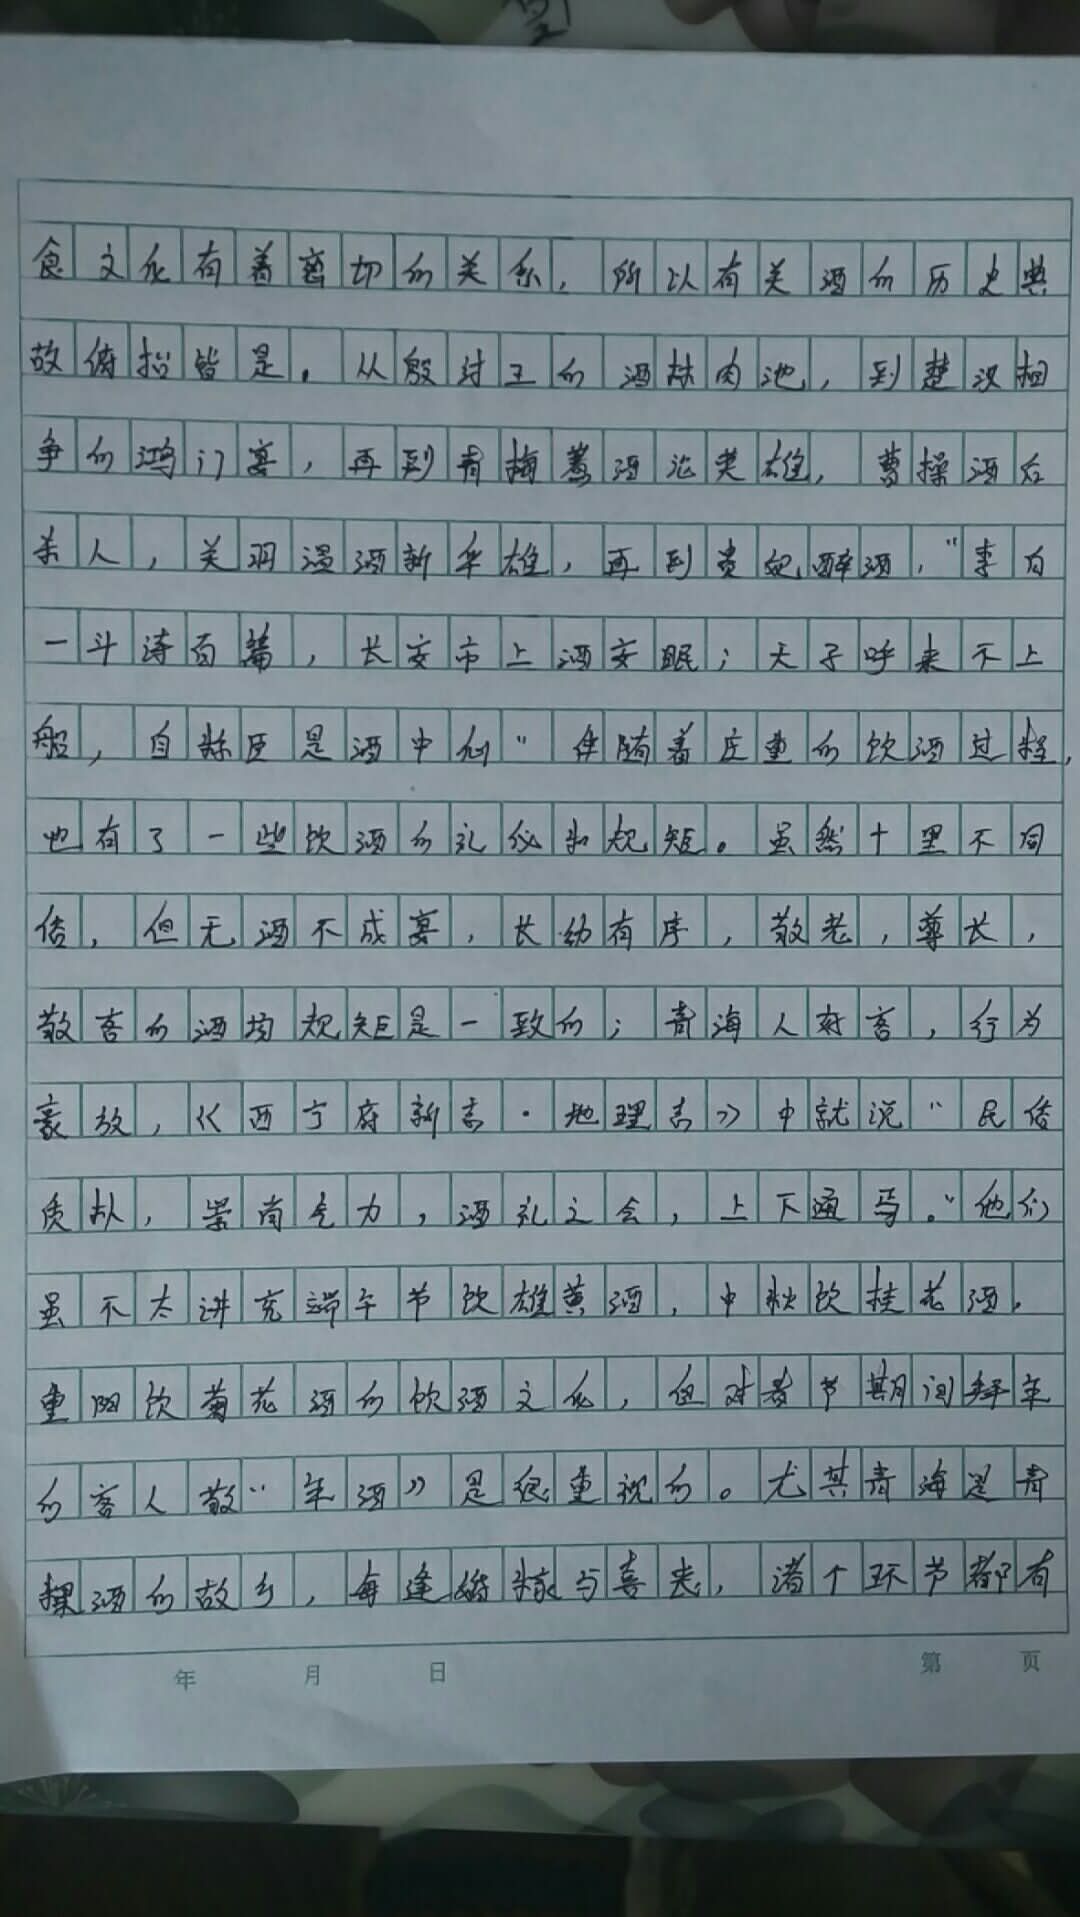 食文化有着密切的关系，所以有关酒的历史典
故俯拾皆是。从殷纣王的酒林肉池，到楚汉相
争的鸿门宴，再到青梅煮酒论英雄，曹操酒后
杀人，关羽温酒斩华雄，再到贵妃醉酒，“李白
一斗诗百篇，长安市上酒安眠；天子呼来不上
船，自称臣是酒中仙”伴随着庄重的饮酒过程，
也有了一些饮酒的礼仪和规矩。虽然十里不同
俗，但无酒不成宴，长幼有序，敬老，尊长，
敬客的酒均规矩是一致的；青海人好客，行为
豪放，《西宁府新志·地理志》中就说“民俗
质朴，崇尚气力，酒礼之会，上下通焉。”他们
虽不太讲究端午节饮雄黄酒，中秋饮桂花酒，
重阳饮菊花酒的饮酒文化，但对春节期间拜年
的客人敬“年酒”是很重视的。尤其青海是青
稞酒的故乡，每逢婚嫁与喜丧，诸个环节都有
年 月 日 第 页